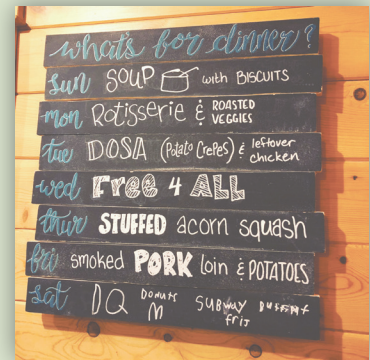 what's for dinner?
sun SOUP with BISCUITS
mon Rotisserie & ROASTED VEGGIES
tue DOSA (Potato Crepes) & leftover chicken
wed FREE 4 ALL
thur STUFFED acorn squash
fri smoked PORK loin & POTATOES
sat DQ DONUTS M SUBWAY frij